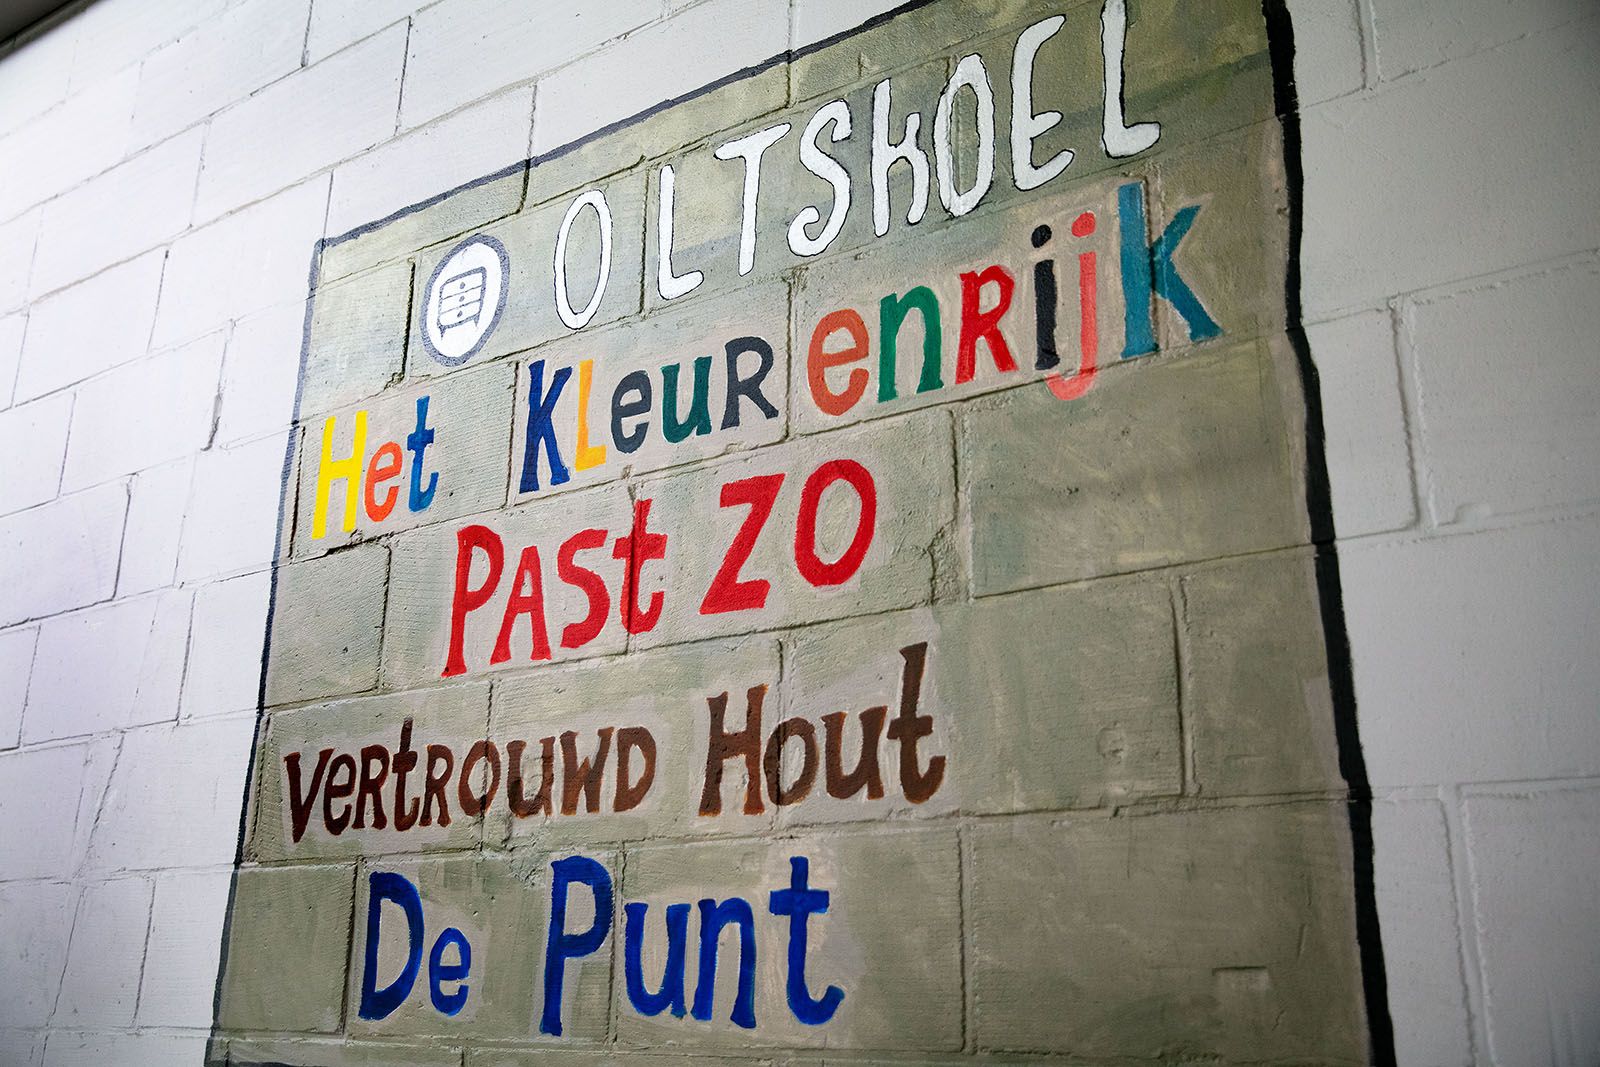 OLTSKOEL
Het KLeuRenRijk
PASt ZO
VeRtROuWD Hout
De Punt